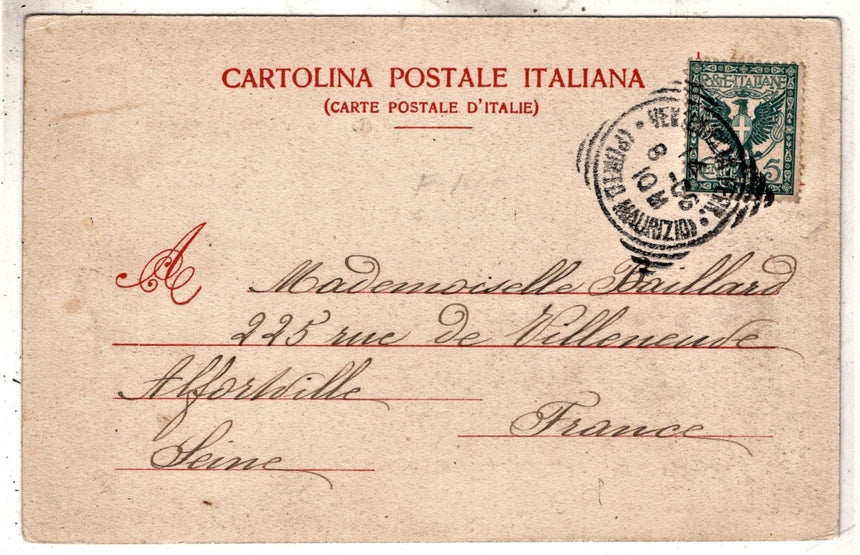 CARTOLINA POSTALE ITALIANA
(CARTE POSTALE D'ITALIE)
POSTE ITALIANE
5
(PORTO MAURIZIO)
10 M
A
Mademoiselle Baillard
225 rue de Villeneude
Alfortville
France
Seine